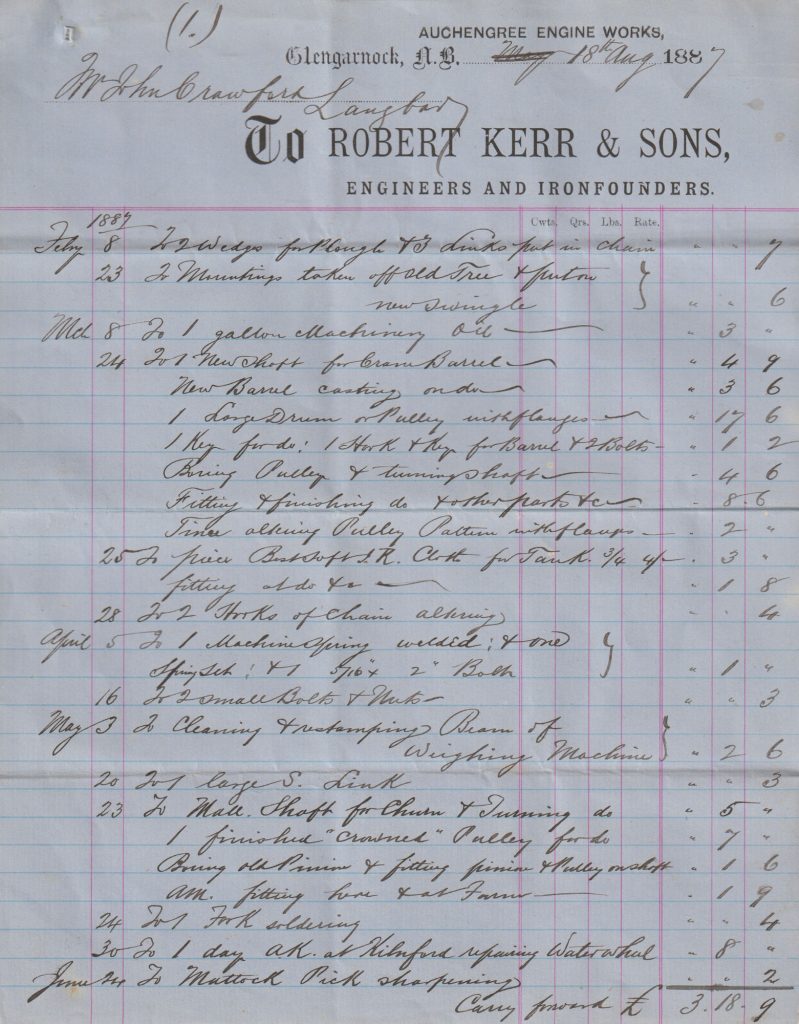 (1.)
AUCHENGREE ENGINE WORKS,
Glengarnock, N.B. May 18th Aug 1887
Mr John Crawford
Langbar
To ROBERT KERR & SONS,
ENGINEERS AND IRONFOUNDERS.
Cwts. Qrs. Lbs. Rate.
1887
Feby 8 To 2 Wedges for Plough & 3 Links put in chain " " 7
23 To Mountings taken off old Tree & put on
new swingle " " 6
Mch 8 To 1 gallon Machinery Oil " 3 "
24 To 1 New Shaft for Crane Barrel " 4 9
New Barrel casting on do " 3 6
1 Large Drum or Pulley with flanges " 17 6
1 Key for do: 1 Hook & Key for Barrel & 2 Bolts " 1 2
Boring Pulley & turning shaft " 4 6
Fitting & finishing do & other parts &c " 8 6
Time altering Pulley Pattern with flanges " 2 "
25 To piece Best Soft I.R. Cloth for Tank. 3/4 4/- " 3 "
fitting at do &c " 1 8
28 To 2 Hooks of Chain altering " " 4
April 5 To 1 Machine Spring welded: & one
Spring Set: & 1 5/16" x 2" Bolt " 1 "
16 To 2 small Bolts & Nuts " " 3
May 3 To Cleaning & restamping Beam of
Weighing Machine " 2 6
20 To 1 large S. Link " " 3
23 To Mall. Shaft for Churn & Turning do " 5 "
1 finished "Crowned" Pulley for do " 7 "
Boring old Pinion & fitting pinion & Pulley on shaft " 1 6
AM. fitting here & at Farm " 1 9
24 To 1 Fork soldering " " 4
30 To 1 day AK. at Kilnford repairing Waterwheel " 8 "
June 24 To Mattock Pick sharpening " " 2
Carry forward £ 3. 18. 9